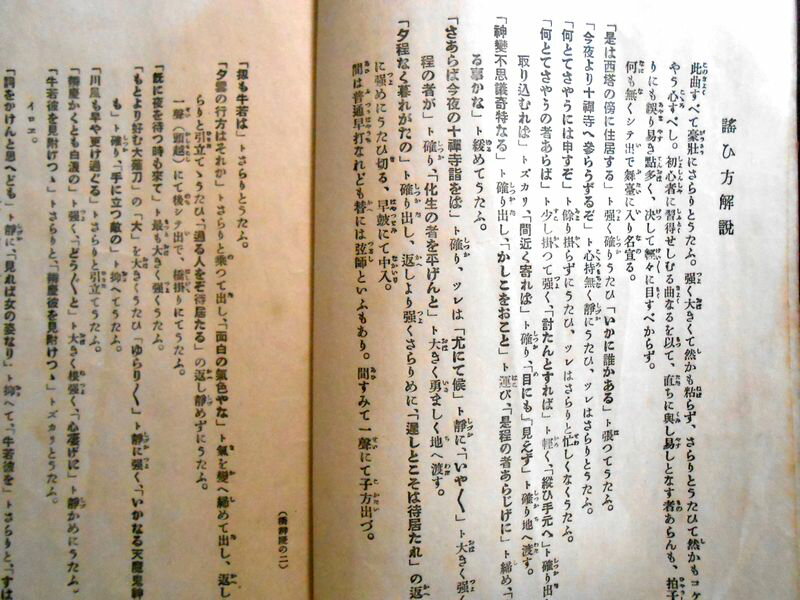 謠ひ方解説
此曲すべて豪壯にさらりとうたふ。強く大きくて然かも粘らず、さらりとうたひて然かもコケ
やう心すべし。初心者に習得せしむる曲なるを以て、直ちに與し易しとなす者あらんも、拍子
りにも誤り易き點多く、決して輕々に目すべからず。
何も無くシテ出で舞臺に入り名宣る。
「是は西塔の傍に住居する」ト強く確りうたひ「いかに誰かある」ト張つてうたふ。
「今夜より十禪寺へ參らうずるぞ」ト心持無く靜にうたひ、ツレはさらりとうたふ。
「何とてさやうには申すぞ」ト餘り掛らずにうたひ、ツレはさらりと忙しくなくうたふ。
「何とてさやうの者あらば」ト少し掛つて強く、「討たんとすれば」ト輕く、「縱ひ手元へ」ト確り出
取り込むれば」トズカリ、「間近く寄れば」ト確り、「目にも」「見えず」ト確り地へ渡す。
「神變不思議奇特なる」ト確り出し、「かしこをおこと」ト運び、「是程の者あらじげに」ト緩め、
る事かな」ト緩めてうたふ。
「さあらば今夜の十禪寺詣をば」ト確り、ツレは「尤にて候」ト靜に、「いや〱」ト大きく強く
程の者が」ト確り、「化生の者を平げんと」ト大きく勇ましく地へ渡す。
「夕程なく暮れがたの」ト確り出し、返しより強くさらりめに、「遲しとこそは待居たれ」の返
に強めにうたひ切る、早鼓にて中入。
間は普通早打なれども替には弦師といふもあり。間すみて一聲にて子方出づ。
(橋辨慶の二)
「扨も牛若は」トさらりとうたふ。
「夕雲の行方はそれか」トさらりと乘つて出し、「面白の氣色やな」ト氣を變へ緩めて出し、返し
らりと引立てゝうたひ、「通る人をぞ待居たる」の返し靜めずにうたふ。
一聲(頭越)にて後シテ出で、橋掛りにてうたふ。
「既に夜を待つ時も來て」ト最も大きく強くうたふ。
「もとより好む大薙刀」の「大」を大きくうたひ「ゆらり〱」ト靜に強く、「いかなる天魔鬼神
も」ト確り、「手に立つ敵の」ト抑へてうたふ。
「川風も早や更け過ぐる」トさらりと引立てうたふ。
「辨慶かくとも白波の」ト強く、「どう〱と」ト大きく根強く、「心凄げに」ト靜かめにうたふ。
「牛若彼を見附けつゝ」トさらりと、「辨慶彼を見附けつゝ」トズカリとうたふ。
イロエ。
「詞をかけんと思へども」ト靜に、「見れば女の姿なり」ト抑へて、「牛若彼を」トさらりと、「すは